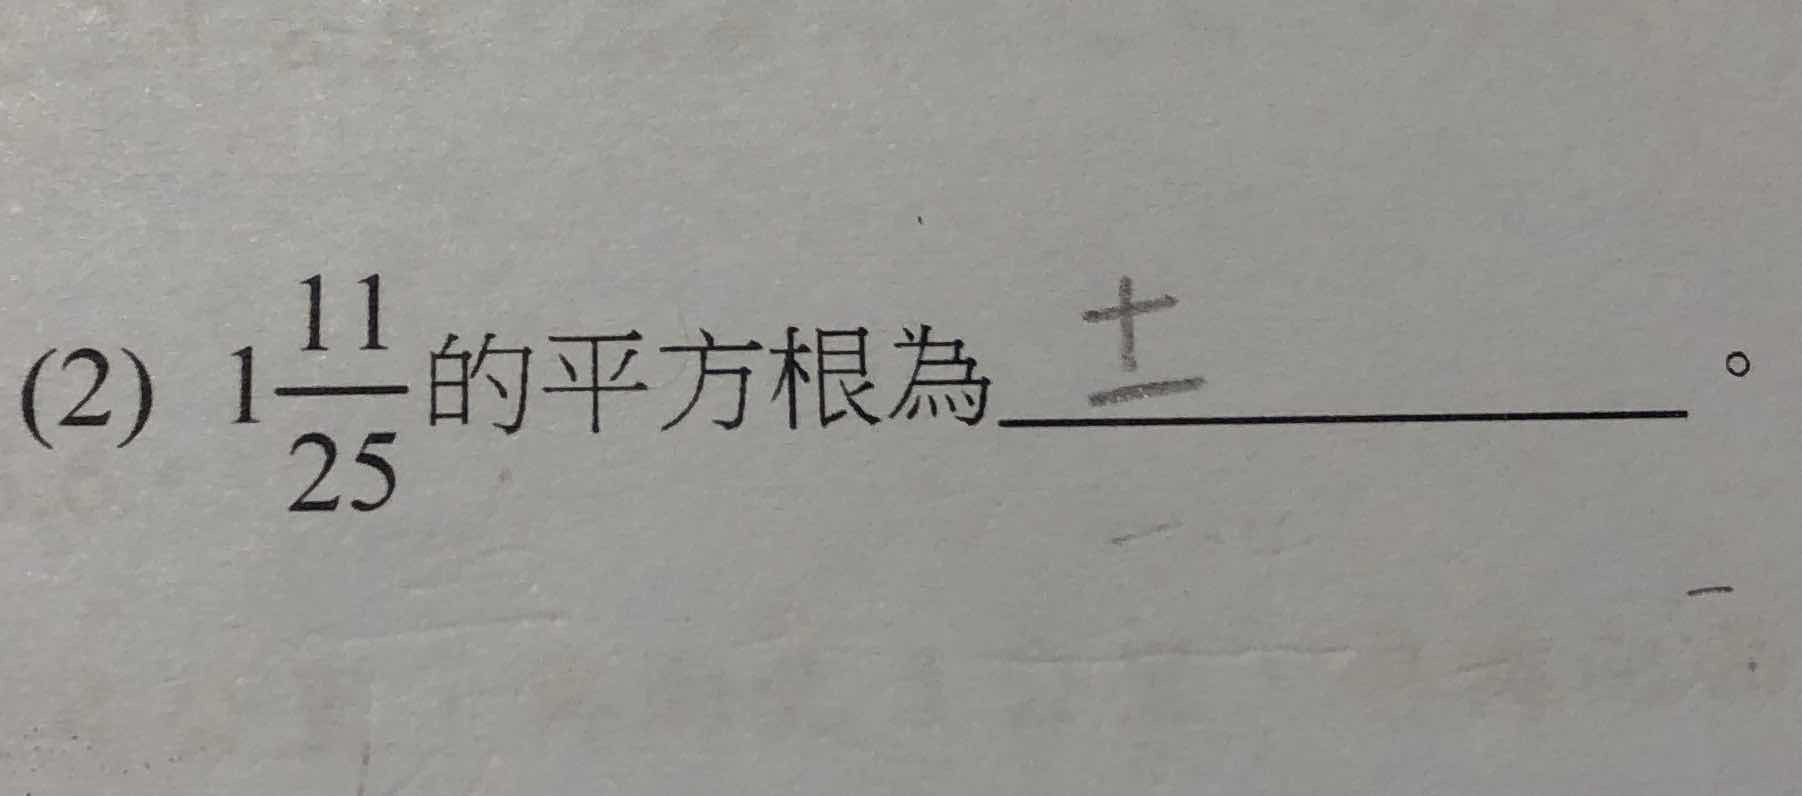 (2) 1 11/25 的平方根為 ± 。